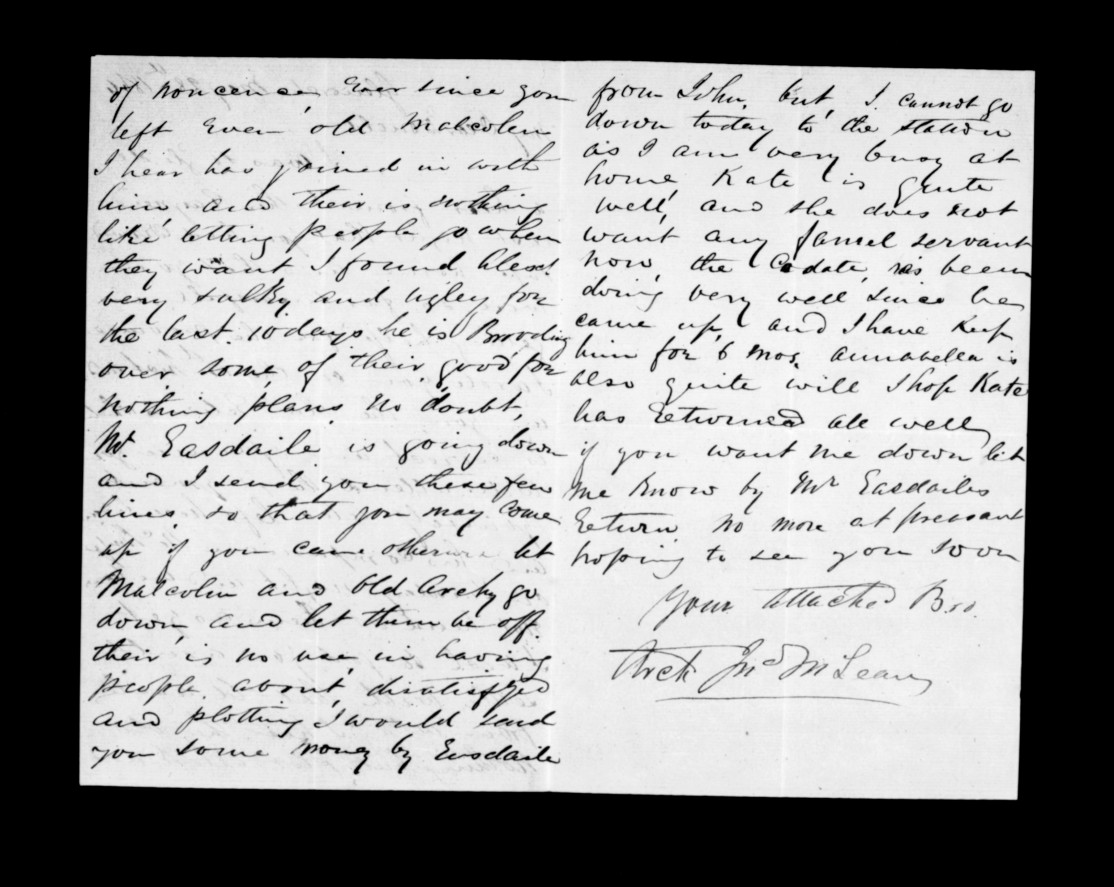 of noncence, Ever since you
left even old Malcolm
I hear has joined in with
him and their is nothing
like letting people go when
they want I found Alexr
very sulky and ugley for
the last 10 days he is Brooding
over some of their good for
nothing plans no doubt,
Mr. Easdaile is going down
and I send you these few
lines, so that you may come
up if you can otherwise let
Malcolm and Old Archy go
down, and let them be off.
their is no use in having
people about disatisfyed
and plotting I would send
you some money by Easdaile
from John, but, I cannot go
down today to the station
as I am very busy at
home Kate is quite
well, and she does not
want any famel servant
now, the Cadate, is been
doing very well since he
came up, and I have keep
him for 6 mos, Annabella is
also quite will I hop Kate
has returned all well,
if you want me down let
me know by Mr Easdailes
Return, no more at pressant
hoping to see you soon
Your attached Bro.
Arch Jno McLean